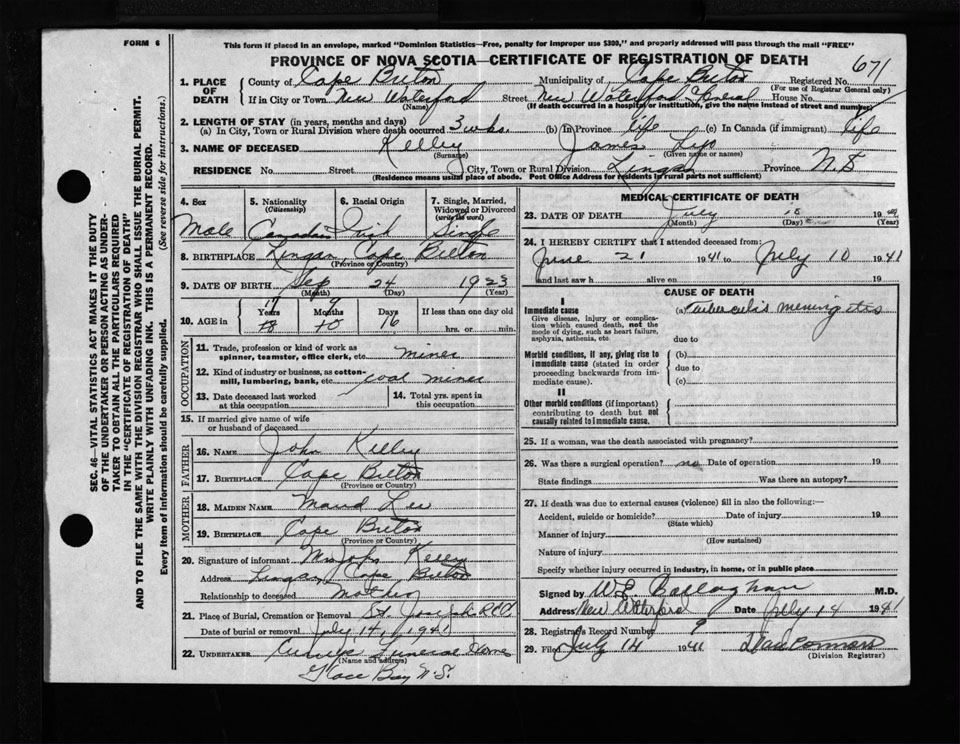 FORM 6
This form if placed in an envelope, marked "Dominion Statistics—Free, penalty for improper use $300," and properly addressed will pass through the mail "FREE"
PROVINCE OF NOVA SCOTIA—CERTIFICATE OF REGISTRATION OF DEATH 671
1. PLACE OF DEATH County of Cape Breton Municipality of Cape Breton Registered No.
(For use of Registrar General only)
If in City or Town New Waterford Street New Waterford General House No.
(Name) (If death occurred in a hospital or institution, give the name instead of street and number)
2. LENGTH OF STAY (in years, months and days)
(a) In City, Town or Rural Division where death occurred 3 wks. (b) In Province life (c) In Canada (if immigrant) life
3. NAME OF DECEASED Kelley James
(Surname) (Given name or names)
RESIDENCE No. Street City, Town or Rural Division Lingan Province N.S
(Residence means usual place of abode. Post Office Address for residents in rural parts not sufficient)
4. Sex 5. Nationality (Citizenship) 6. Racial Origin 7. Single, Married, Widowed or Divorced (write the word)
Male Canadian Irish Single
8. BIRTHPLACE Lingan, Cape Breton
(Province or Country)
9. DATE OF BIRTH Sep 24 1923
(Month) (Day) (Year)
10. AGE in 17 Years 9 Months Days If less than one day old
18 10 16 hrs. or min.
OCCUPATION
11. Trade, profession or kind of work as spinner, teamster, office clerk, etc. miner
12. Kind of industry or business, as cotton-mill, lumbering, bank, etc. coal mines
13. Date deceased last worked at this occupation 14. Total yrs. spent in this occupation
15. If married give name of wife or husband of deceased
FATHER
16. NAME John Kelley
17. BIRTHPLACE Cape Breton
(Province or Country)
MOTHER
18. MAIDEN NAME Maud Lee
19. BIRTHPLACE Cape Breton
(Province or Country)
20. Signature of informant Mrs John Kelley
Address Lingan, Cape Breton
Relationship to deceased Mother
21. Place of Burial, Cremation or Removal St. Joseph
Date of burial or removal July 14, 1941
22. UNDERTAKER Funeral Home
(Name and address)
Glace Bay N.S.
MEDICAL CERTIFICATE OF DEATH
23. DATE OF DEATH July 19
(Month) (Day) (Year)
24. I HEREBY CERTIFY that I attended deceased from:
June 21 1941 to July 10 1941
and last saw h alive on 19
CAUSE OF DEATH
I
Immediate cause (a) Tuberculis meningetes
Give disease, injury or complication which caused death, not the mode of dying, such as heart failure, asphyxia, asthenia, etc.
due to
Morbid conditions, if any, giving rise to immediate cause (stated in order proceeding backwards from immediate cause). (b)
due to
(c)
II
Other morbid conditions (if important) contributing to death but not causally related to immediate cause.
25. If a woman, was the death associated with pregnancy?
26. Was there a surgical operation? no Date of operation 19
State findings Was there an autopsy?
27. If death was due to external causes (violence) fill in also the following:—
Accident, suicide or homicide? Date of injury 19
(State which)
Manner of injury
(How sustained)
Nature of injury
Specify whether injury occurred in industry, in home, or in public place
Signed by M.D.
Address New Waterford Date July 14 1941
28. Registrar's Record Number 9
29. Filed July 14 1941
(Division Registrar)
SEC. 46—VITAL STATISTICS ACT MAKES IT THE DUTY
OF THE UNDERTAKER OR PERSON ACTING AS UNDER-
TAKER TO OBTAIN ALL THE PARTICULARS REQUIRED
IN THE "CERTIFICATE OF REGISTRATION OF DEATH"
AND TO FILE THE SAME WITH THE DIVISION REGISTRAR WHO SHALL ISSUE THE BURIAL PERMIT.
WRITE PLAINLY WITH UNFADING INK. THIS IS A PERMANENT RECORD.
Every item of information should be carefully supplied. (See reverse side for instructions.)